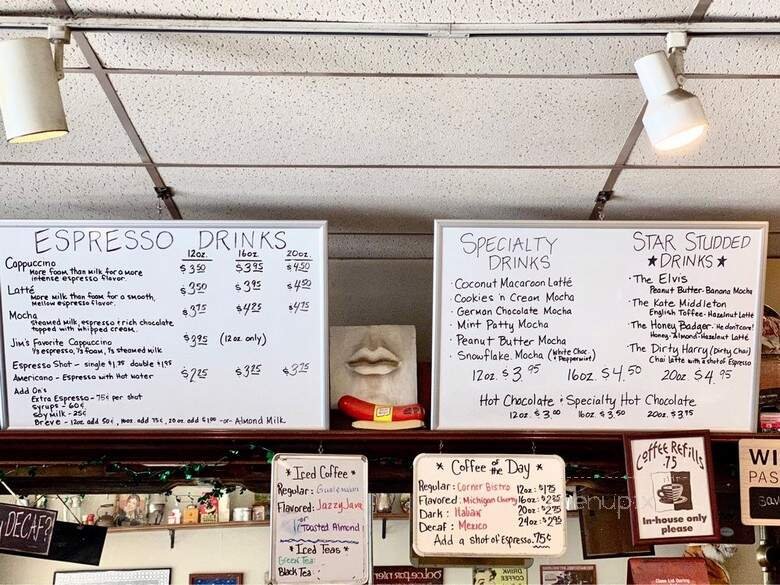 ESPRESSO DRINKS
12oz. 16oz. 20oz.
Cappuccino $3.50 $3.95 $4.50
More foam than milk for a more
intense espresso flavor.
Latté $3.50 $3.95 $4.50
More milk than foam for a smooth,
Mellow espresso flavor.
Mocha $3.75 $4.25 $4.75
Steamed milk, espresso & rich chocolate
topped with whipped cream.
Jim's Favorite Cappuccino $3.95 (12oz only)
⅓ espresso, ⅓ foam, ⅓ steamed milk
Espresso Shot - single $1.35 double $1.95
Americano - Espresso with Hot water $2.25 $3.25 $3.75
Add On's
Extra Espresso - 75¢ per shot
Syrups - 60¢
Soy milk - 25¢
Breve - 12oz add 50¢, 16oz. add 75¢, 20oz. add $1.00 -or- Almond Milk
SPECIALTY
DRINKS
· Coconut Macaroon Latté
· Cookies 'n Cream Mocha
· German Chocolate Mocha
· Mint Patty Mocha
· Peanut Butter Mocha
· Snowflake Mocha (White Choc. & Peppermint)
STAR STUDDED
★DRINKS★
· The Elvis
Peanut Butter-Banana Mocha
· The Kate Middleton
English Toffee-Hazelnut Latté
· The Honey Badger- He don't care!
Honey-Almond-Hazelnut Latté
· The Dirty Harry (Dirty Chai)
Chai latte with a shot of Espresso
12oz. $3.95 16oz. $4.50 20oz. $4.95
Hot Chocolate & Specialty Hot Chocolate
12oz. $3.00 16oz. $3.50 20oz. $3.75
* Iced Coffee *
Regular: Guatemalan
Flavored: Jazzy Java
or
Toasted Almond
* Iced Teas *
Green Tea:
Black Tea:
* Coffee of the Day *
Regular: Corner Bistro 12oz: $1.75
Flavored: Michigan Cherry 16oz: $2.25
Dark: Italian 20oz: $2.75
Decaf: Mexico 24oz: $2.95
Add a shot of Espresso .75¢
COFFEE REFILLS
.75
In-house only
please
WI
PAS
DECAF?
DRINK
COFFEE